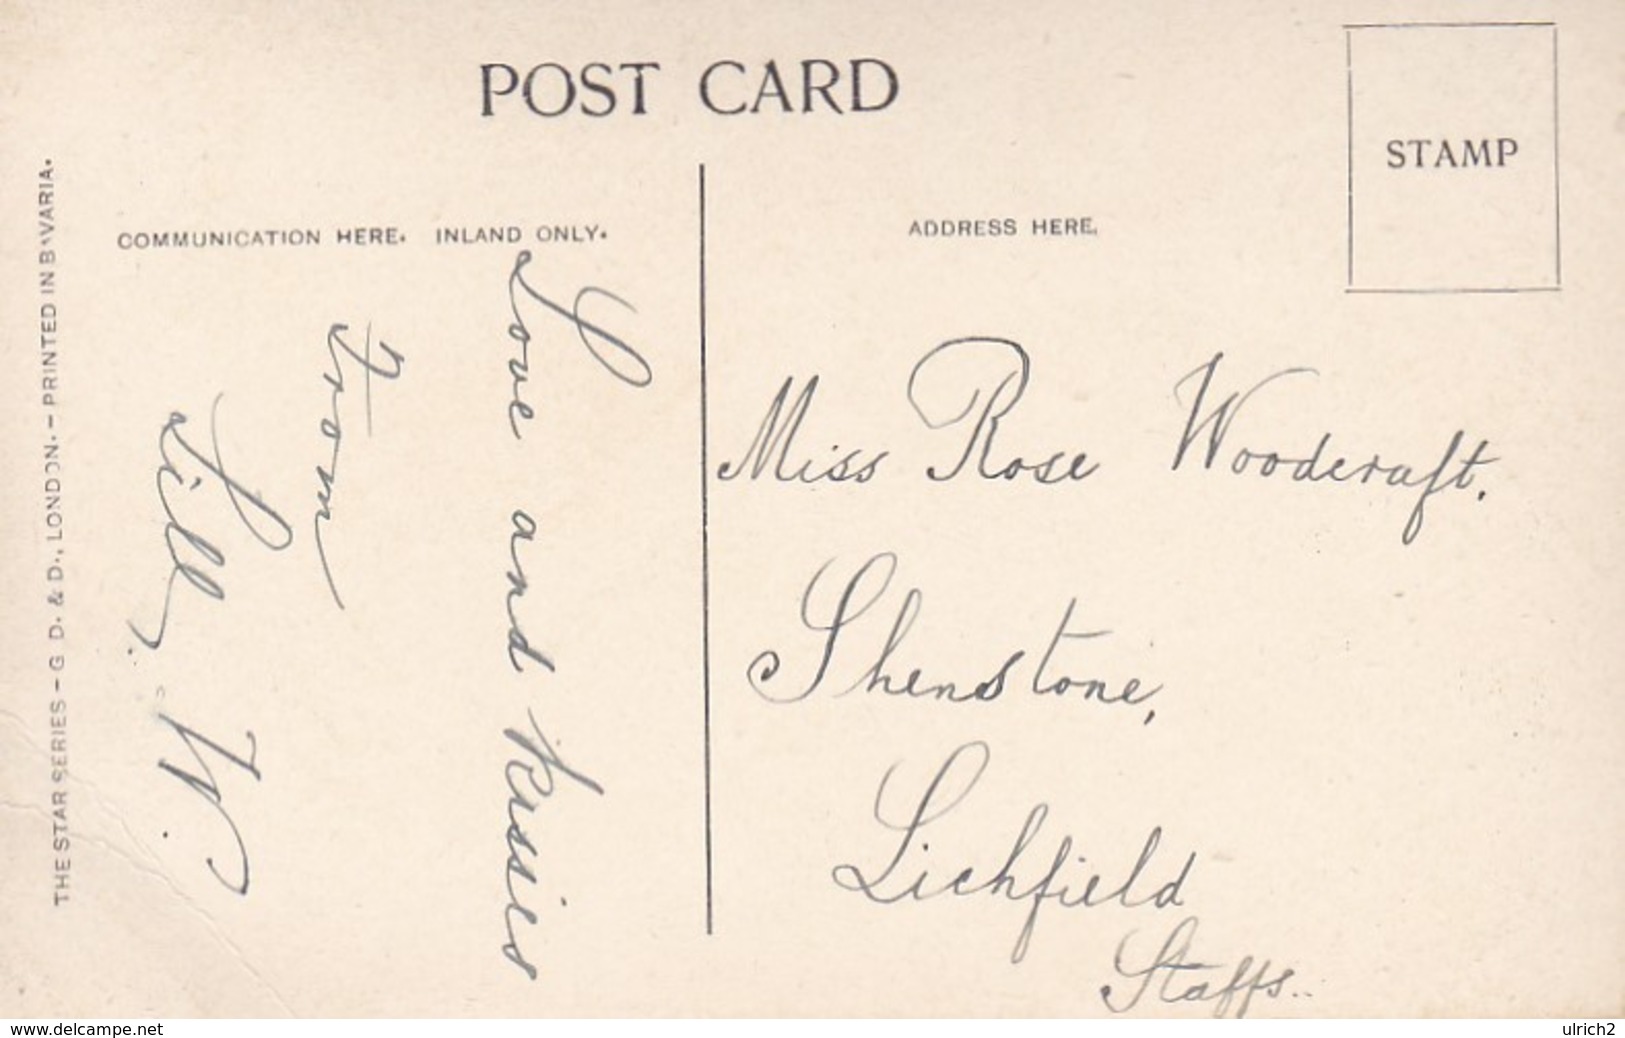 POST CARD
STAMP
COMMUNICATION HERE. INLAND ONLY.
ADDRESS HERE.
THE STAR SERIES – G D. & D., LONDON. – PRINTED IN BAVARIA.
Love and Kisses
From
Lill. W.
Miss Rose Woodcraft.
Shenstone,
Lichfield
Staffs..
www.delcampe.net
ulrich2